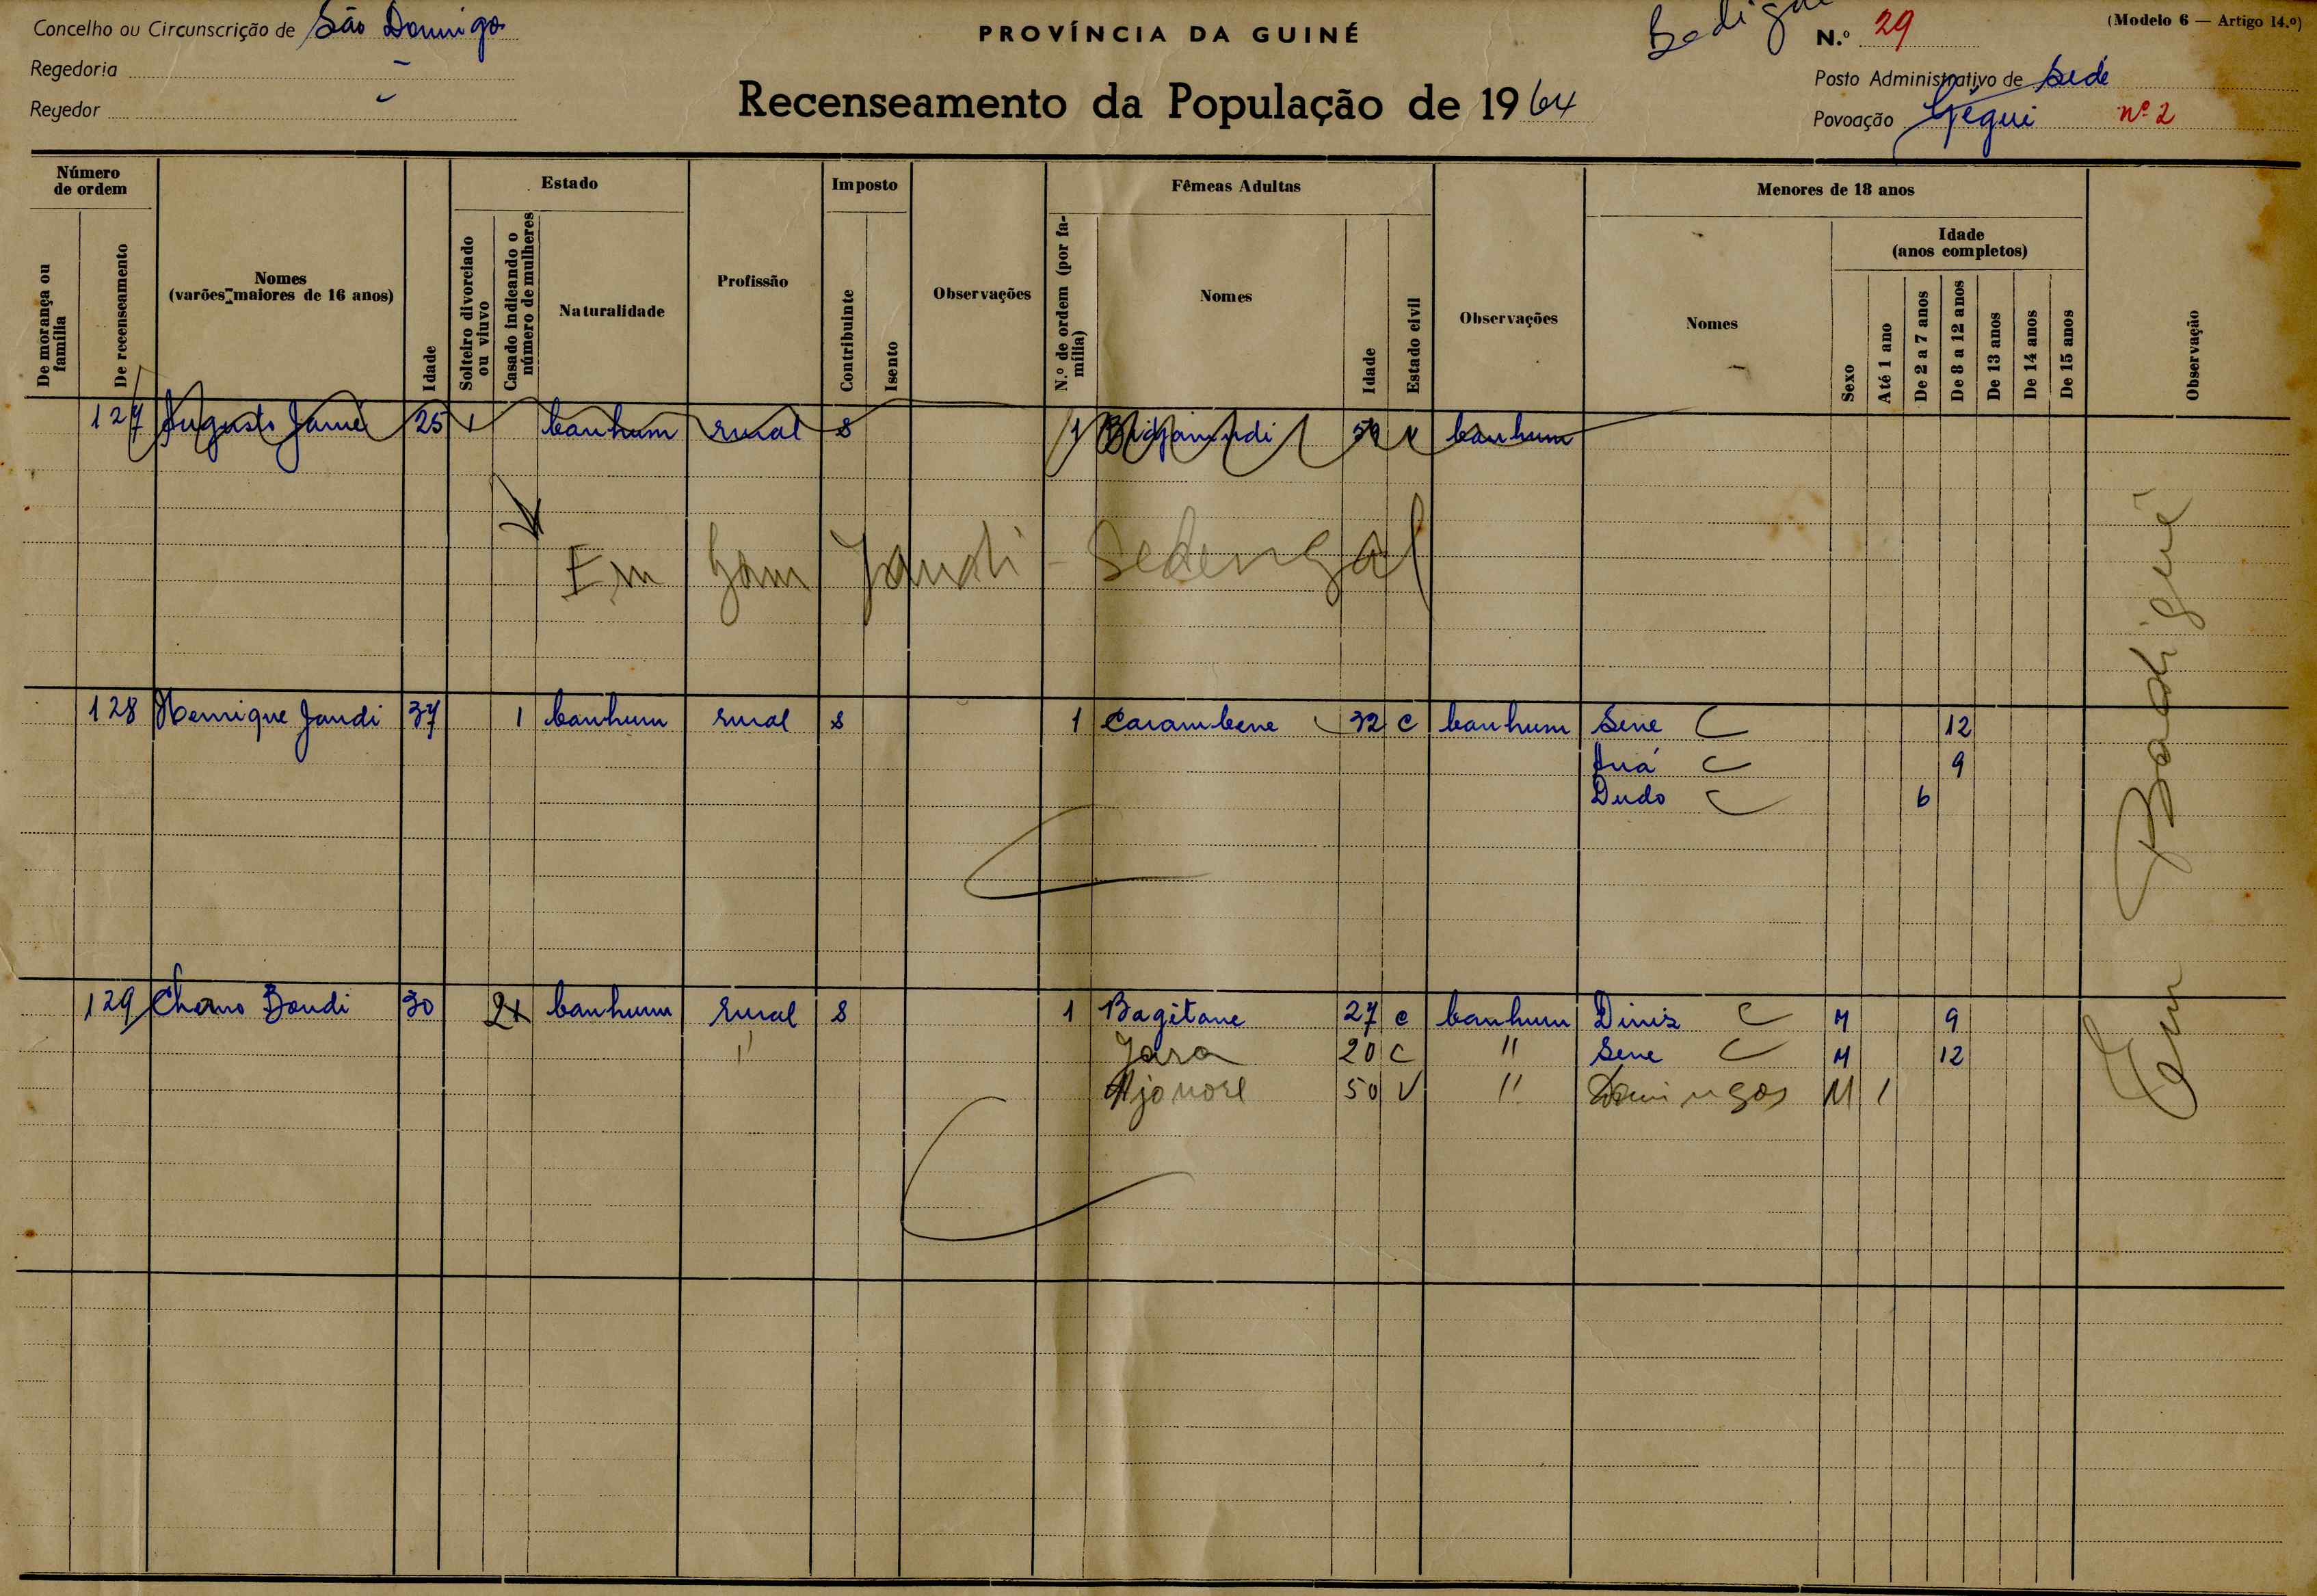 Concelho ou Circunscrição de São Domingos
Regedoria -
Regedor -
PROVÍNCIA DA GUINÉ
Recenseamento da População de 1964
(Modelo 6 — Artigo 14.º)
N.º 29
Posto Administrativo de Sede
Povoação Gégui nº 2
Número de ordem
De morança ou família
De recenseamento
Nomes
(varões maiores de 16 anos)
Idade
Estado
Solteiro divorciado ou viuvo
Casado indicando o número de mulheres
Naturalidade
Profissão
Imposto
Contribuinte
Isento
Observações
Fêmeas Adultas
N.º de ordem (por família)
Nomes
Idade
Estado civil
Observações
Menores de 18 anos
Nomes
Sexo
Idade
(anos completos)
Até 1 ano
De 2 a 7 anos
De 8 a 12 anos
De 13 anos
De 14 anos
De 15 anos
Observação
127 Augusto Jamé 25 1 banhum rural S 1 50 V banhum
Em Gam Jandi - Sedengal
128 Henrique Jandi 37 1 banhum rural S 1 Carambene 32 C banhum Sene C 12
Auá C 9
Dudo C 6
129 Chano Bandi 30 2 banhum rural S 1 Bagitane 27 C banhum Diniz C M 9
" Jara 20 C " Sene C M 12
50 V " Domingos M 1
Em Badigué